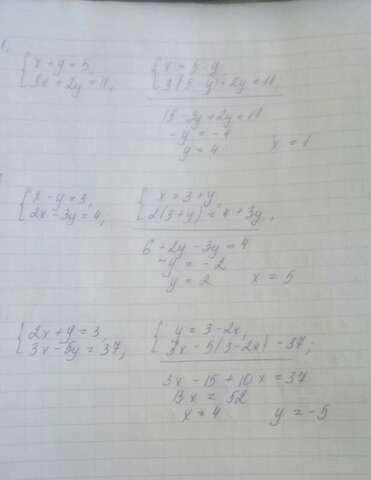 1.
{x + y = 5, {x = 5 - y
{3x + 2y = 11, {3(5 - y) + 2y = 11
15 - 3y + 2y = 11
-y = -4
y = 4 x = 1
{x - y = 3, {x = 3 + y,
{2x - 3y = 4, {2(3 + y) = 4 + 3y,
6 + 2y - 3y = 4
-y = -2
y = 2 x = 5
{2x + y = 3, {y = 3 - 2x,
{3x - 5y = 37, {3x - 5(3 - 2x) = 37;
3x - 15 + 10x = 37
13x = 52
x = 4 y = -5